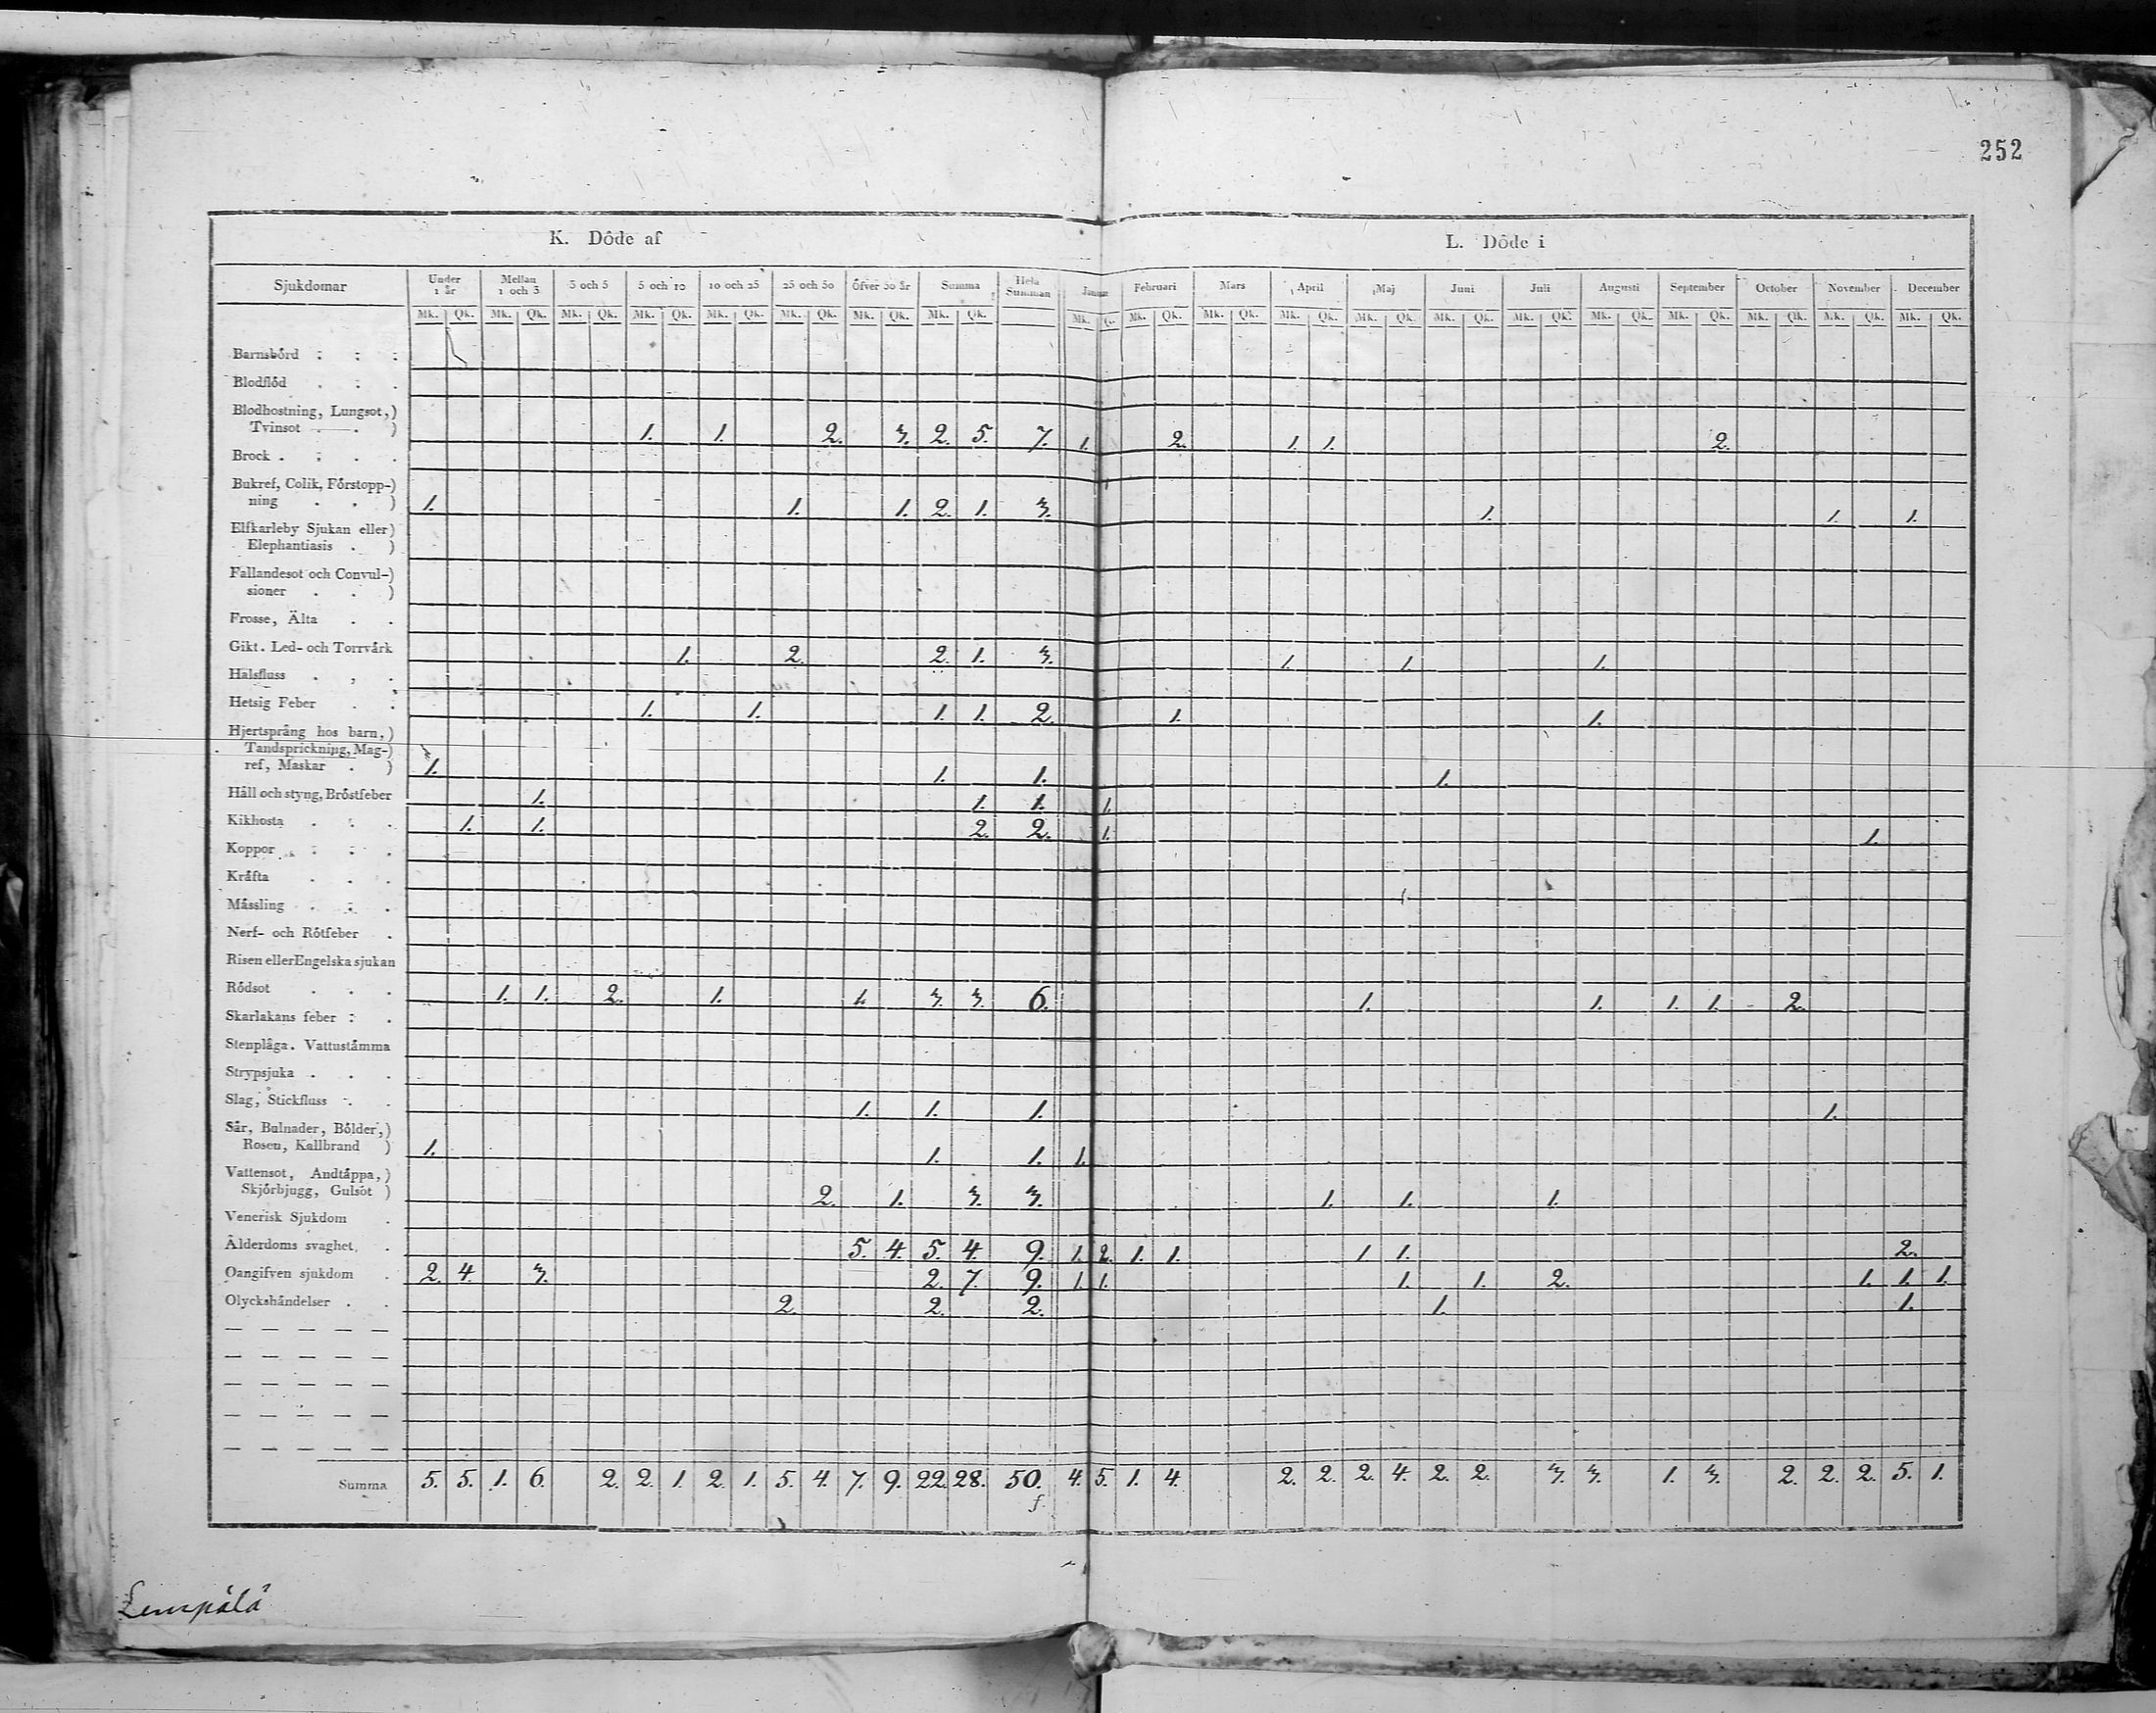 252
K. Döde af L. Döde i
Sjukdomar Under 1 år Mellan 1 och 3 3 och 5 5 och 10 10 och 25 25 och 50 Öfver 50 år Summa Hela Summan Januar Februari Mars April Maj Juni Juli Augusti September October November December
Mk. Qk. Mk. Qk. Mk. Qk. Mk. Qk. Mk. Qk. Mk. Qk. Mk. Qk. Mk. Qk. Mk. Q. Mk. Qk. Mk. Qk. Mk. Qk. Mk. Qk. Mk. Qk. Mk. Qk. Mk. Qk. Mk. Qk. Mk. Qk. Mk. Qk. Mk. Qk.
Barnsbörd
Blodflöd
Blodhostning, Lungsot,)
Tvinsot . ) 1. 1. 2. 3. 2. 5. 7. 1. 2. 1. 1. 2.
Brock
Bukref, Colik, Förstopp-)
ning . . ) 1. 1. 1. 2. 1. 3. 1. 1. 1.
Elfkarleby Sjukan eller)
Elephantiasis . )
Fallandesot och Convul-)
sioner . . )
Frosse, Älta
Gikt. Led- och Torrvärk 1. 2. 2. 1. 3. 1. 1. 1.
Halsfluss
Hetsig Feber 1. 1. 1. 1. 2. 1. 1.
Hjertsprång hos barn,)
Tandsprickning, Mag-)
ref, Maskar . ) 1. 1. 1. 1.
Håll och styng, Bröstfeber 1. 1. 1. 1.
Kikhosta 1. 1. 2. 2. 1. 1.
Koppor
Kräfta
Mässling
Nerf- och Rötfeber
Risen eller Engelska sjukan
Rödsot 1. 1. 2. 1. 1. 3. 3. 6. 1. 1. 1. 1. 2.
Skarlakans feber
Stenplåga. Vattustämma
Strypsjuka
Slag, Stickfluss 1. 1. 1. 1.
Sår, Bulnader, Bölder,)
Rosen, Kallbrand ) 1. 1. 1. 1.
Vattensot, Andtäppa,)
Skjörbjugg, Gulsot ) 2. 1. 3. 3. 1. 1. 1.
Venerisk Sjukdom
Ålderdoms svaghet 5. 4. 5. 4. 9. 1. 2. 1. 1. 1. 1. 2.
Oangifven sjukdom 2. 4. 3. 2. 7. 9. 1. 1. 1. 1. 2. 1. 1. 1.
Olyckshändelser 2. 2. 2. 1. 1.
Summa 5. 5. 1. 6. 2. 2. 1. 2. 1. 5. 4. 7. 9. 22. 28. 50. 4. 5. 1. 4. 2. 2. 2. 4. 2. 2. 3. 3. 1. 3. 2. 2. 2. 5. 1.
f.
Lempälä